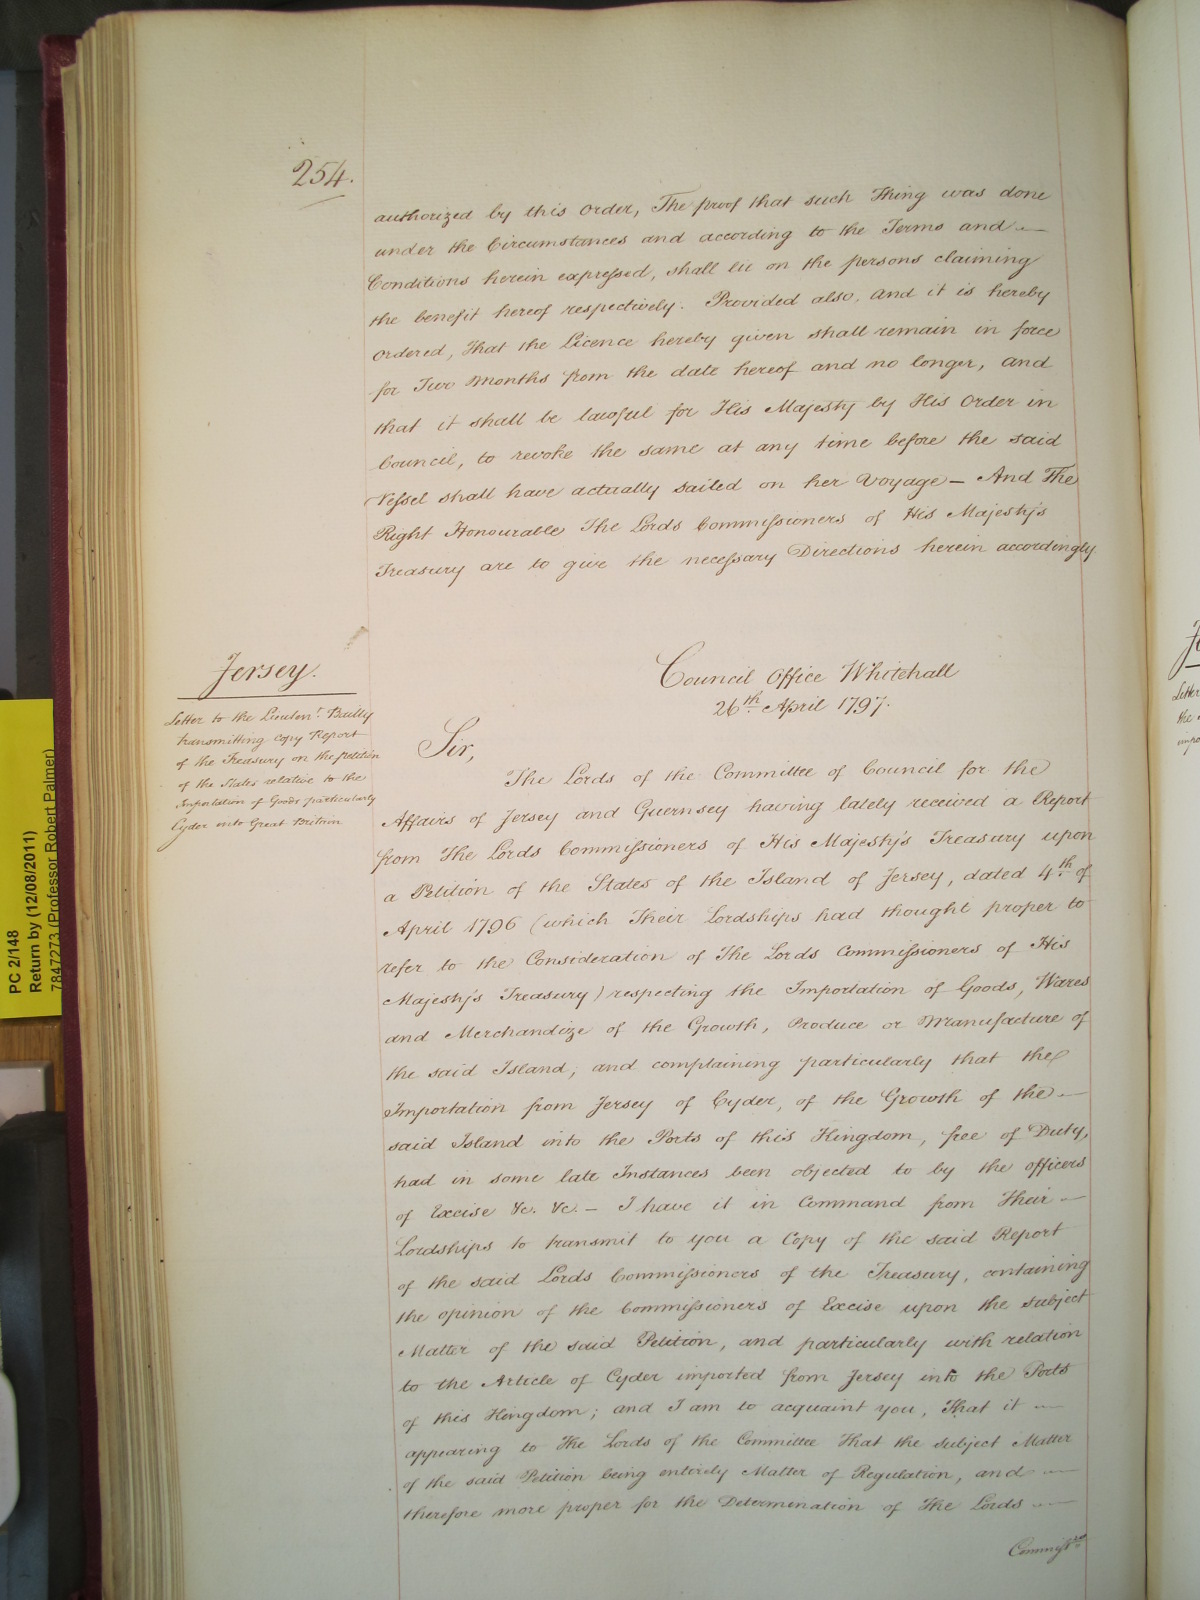 254.
authorized by this Order, The proof that such Thing was done
under the Circumstances and according to the Terms and
Conditions herein expressed, shall lie on the persons claiming
the benefit hereof respectively. Provided also, and it is hereby
Ordered, That the Licence hereby given shall remain in force
for Two Months from the date hereof and no longer, and
that it shall be lawful for His Majesty by His Order in
Council, to revoke the same at any time before the said
Vessel shall have actually sailed on her Voyage — And The
Right Honourable The Lords Commissioners of His Majesty's
Treasury are to give the necessary Directions herein accordingly
Jersey.
Letter to the Lieutent. Bailly
transmitting Copy Report
of the Treasury on the petition
of the States relative to the
Importation of Goods particularly
Cyder into Great Britain
Council Office Whitehall
26th April 1797.
Sir,
The Lords of the Committee of Council for the
Affairs of Jersey and Guernsey having lately received a Report
from The Lords Commissioners of His Majesty's Treasury upon
a Petition of the States of the Island of Jersey, dated 4th of
April 1796 (which Their Lordships had thought proper to
refer to the Consideration of The Lords Commissioners of His
Majesty's Treasury) respecting the Importation of Goods, Wares
and Merchandize of the Growth, Produce or Manufacture of
the said Island; and complaining particularly that the
Importation from Jersey of Cyder, of the Growth of the
said Island into the Ports of this Kingdom, free of Duty,
had in some late Instances been objected to by the Officers
of Excise &c. &c. — I have it in Command from Their
Lordships to transmit to you a Copy of the said Report
of the said Lords Commissioners of the Treasury, containing
the opinion of the Commissioners of Excise upon the subject
Matter of the said Petition, and particularly with relation
to the Article of Cyder imported from Jersey into the Ports
of this Kingdom; and I am to acquaint you, That it
appearing to The Lords of the Committee That the subject Matter
of the said Petition being entirely Matter of Regulation, and
therefore more proper for the Determination of The Lords
Commissrs
PC 2/148
Return by (12/08/2011)
7847273 (Professor Robert Palmer)
Letter
the
impo